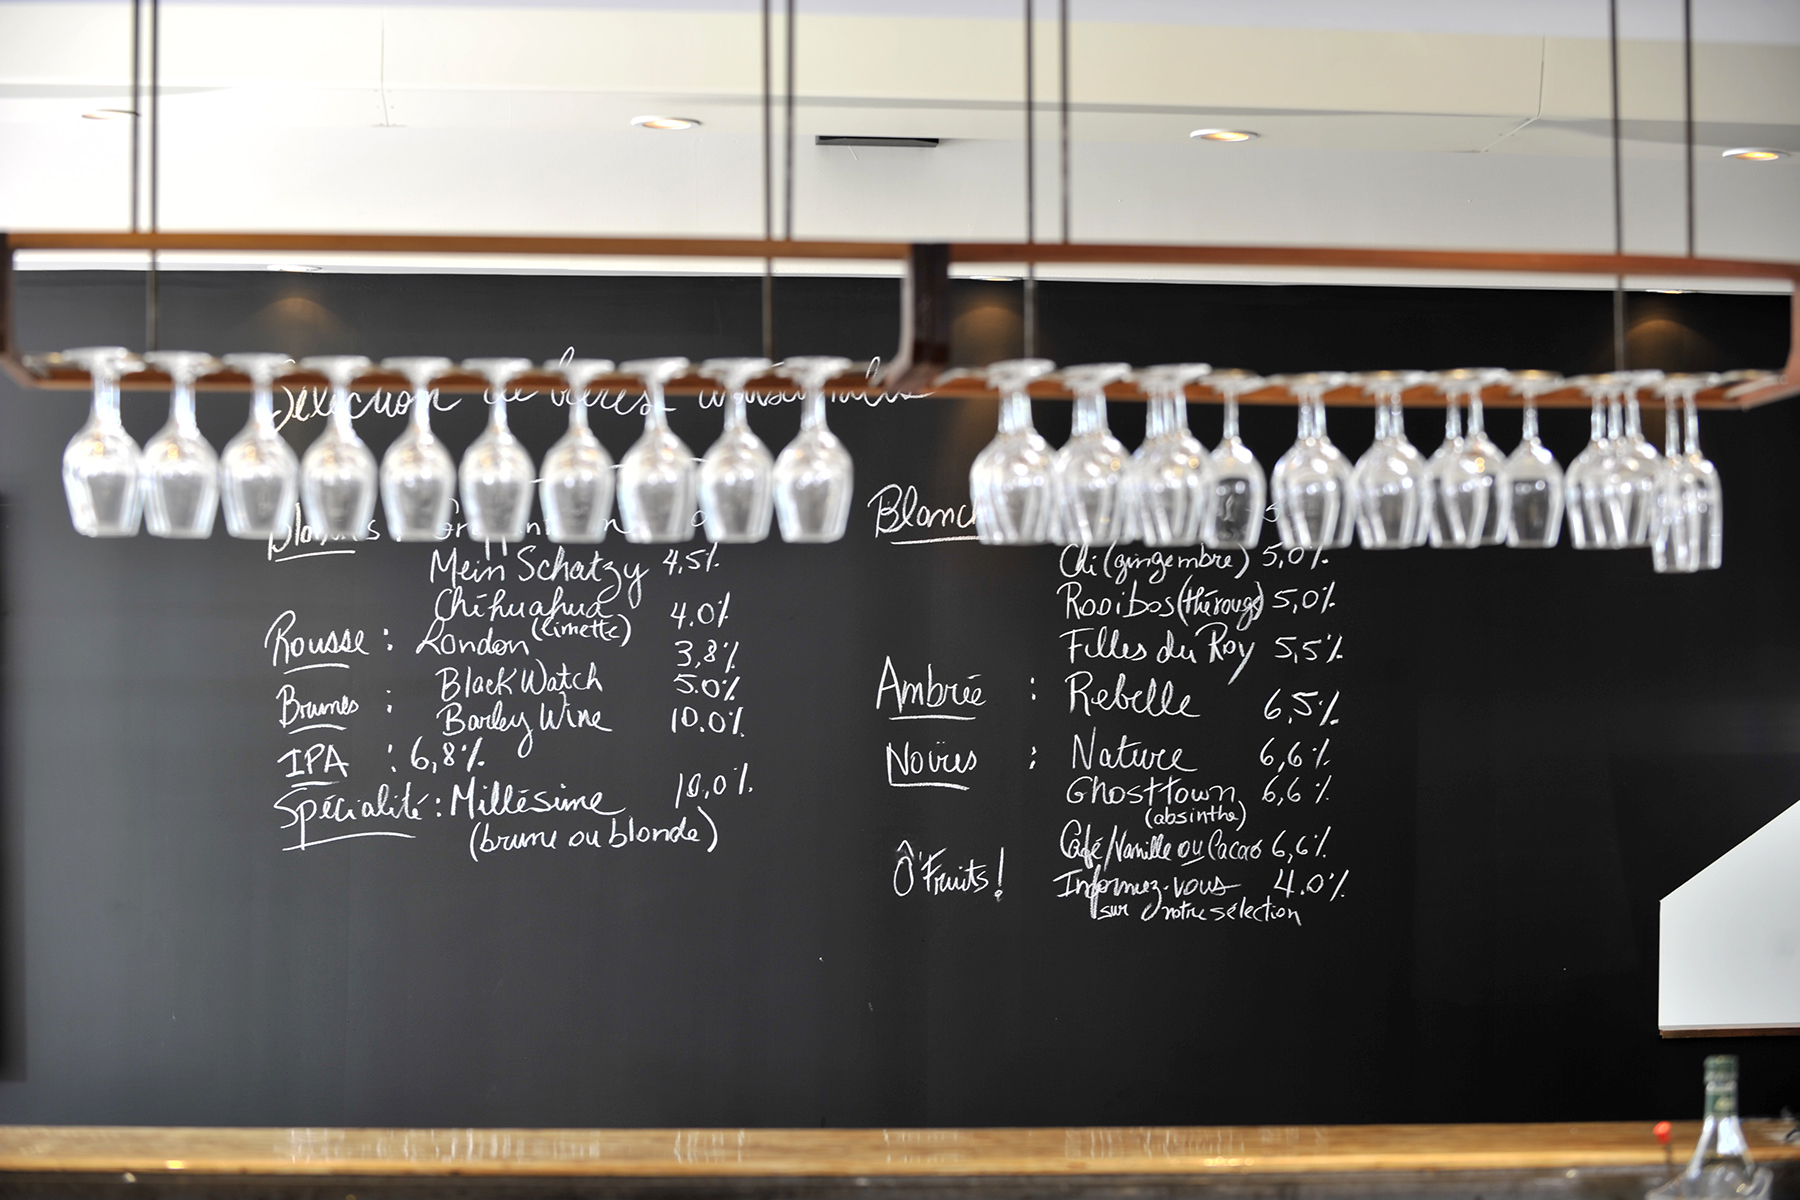 Sélection de bières
Mein Schatzy 4,5%
Chihuahua 4.0%
(limette)
Rousse : London 3,8%
Brunes : Black Watch 5.0%
Barley Wine 10.0%
IPA : 6,8%
Spécialité : Millésime 10,0%
(brune ou blonde)
Chi (gingembre) 5,0%
Rooibos (thé rouge) 5,0%
Filles du Roy 5,5%
Ambrée : Rebelle 6,5%
Noires : Nature 6,6%
Ghosttown 6,6%
(absinthe)
Café/Vanille ou Cacao 6,6%
Ô'Fruits! Informez-vous 4.0%
sur notre sélection